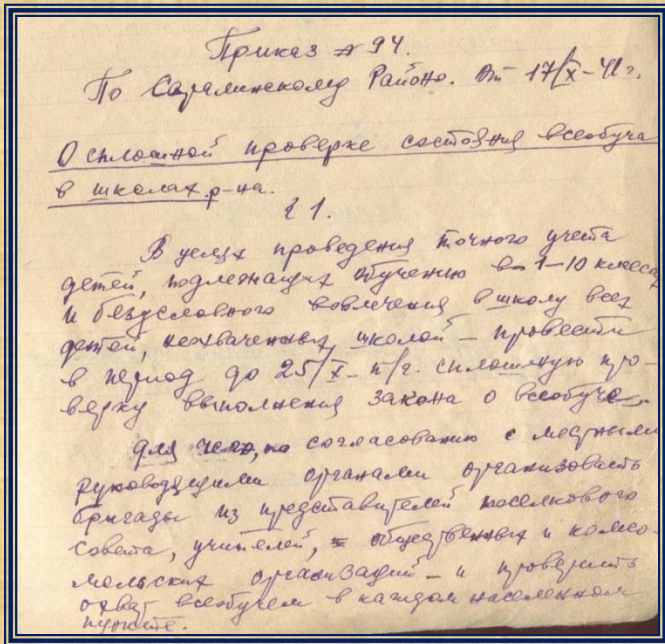 Приказ № 94.
По Саралинскому Району. От 17/X-41 г.
О сплошной проверке состояния всеобуча
в школах р-на.
§ 1.
В целях проведения точного учета
детей, подлежащих обучению в 1-10 классах
и безусловного вовлечения в школу всех
детей, неохваченных школой - провести
в период до 25/X - т/г. сплошную про-
верку выполнения закона о всеобуче.
Для чего, по согласованию с местными
руководящими органами организовать
бригады из представителей поселкового
совета, учителей, общественных и комсо-
мольских организаций - и проверить
охват всеобучем в каждом населенном
пункте.